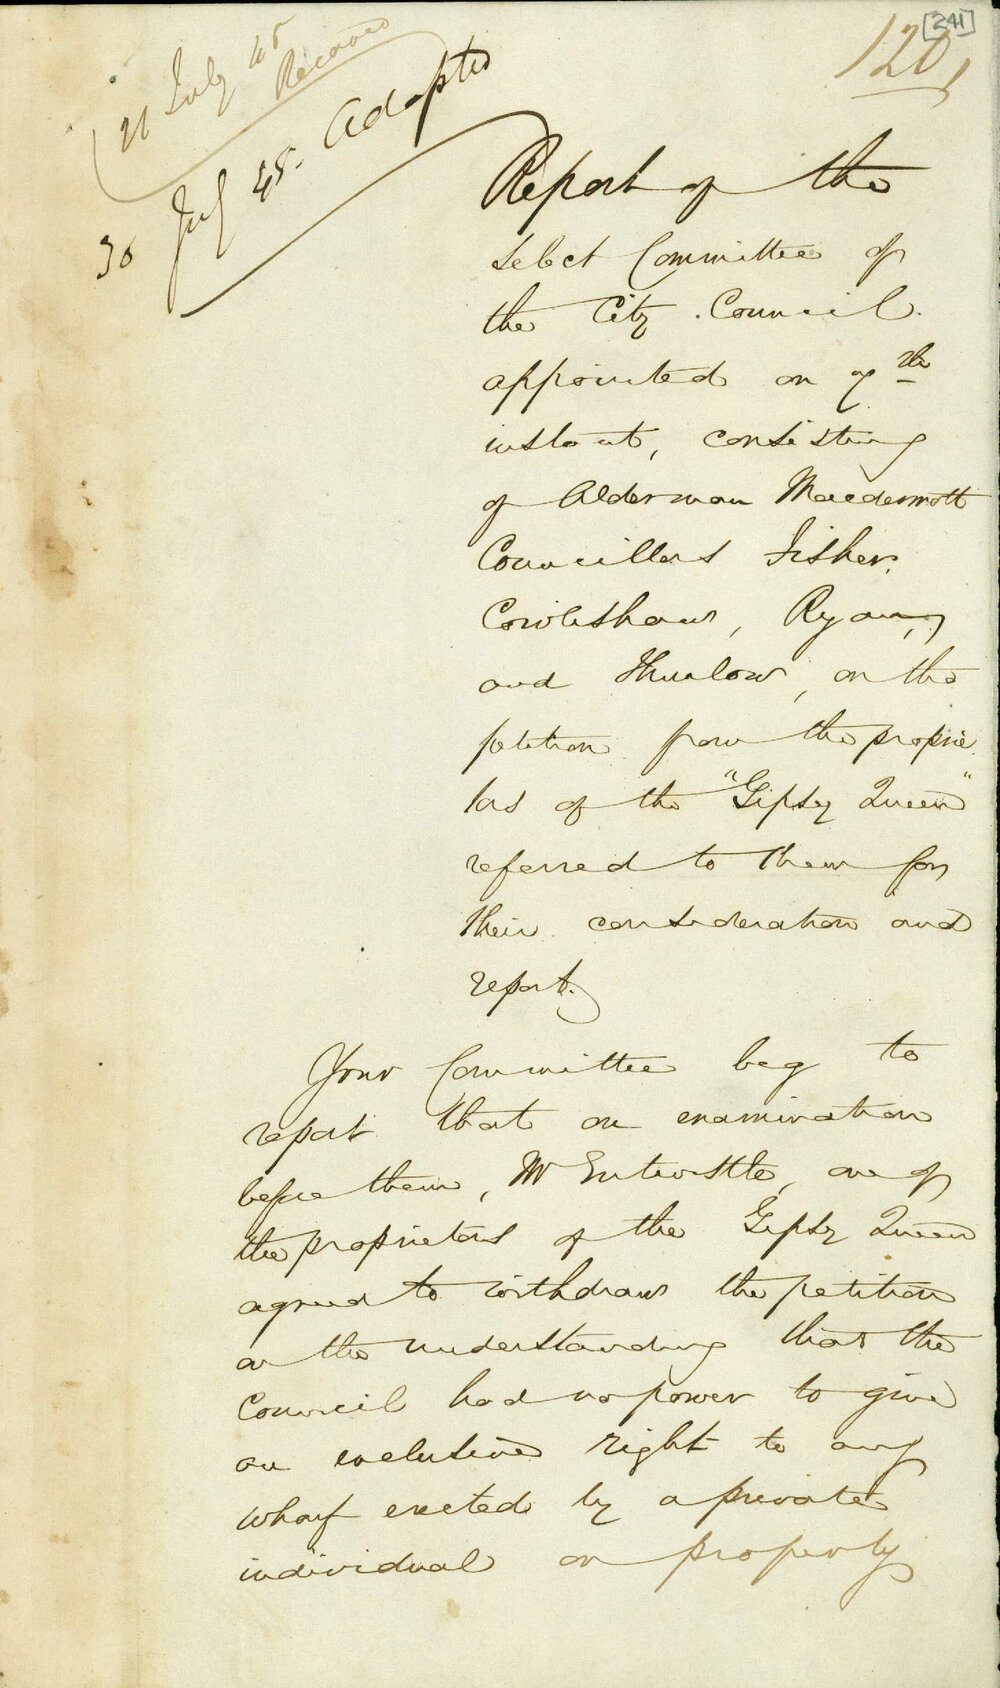 [241]
120,
21 July 45
Received
30 July 45. Adopted
Report of the
Select Committee of
the City Council
appointed on 7th
instant, consisting
of Alderman Macdermott
Councillors Fisher,
Cowlishaw, Ryan,
and Thurlow, on the
petition from the proprie
tors of the "Gipsy Queen"
referred to them for
their consideration and
report.
Your Committee beg to
report that on examination
before them, Mr Entwistle, one of
the proprietors of the Gipsy Queen
agreed to withdraw the petition
on the understanding that the
Council had no power to give
an exclusive right to any
wharf erected by a private
individual on property